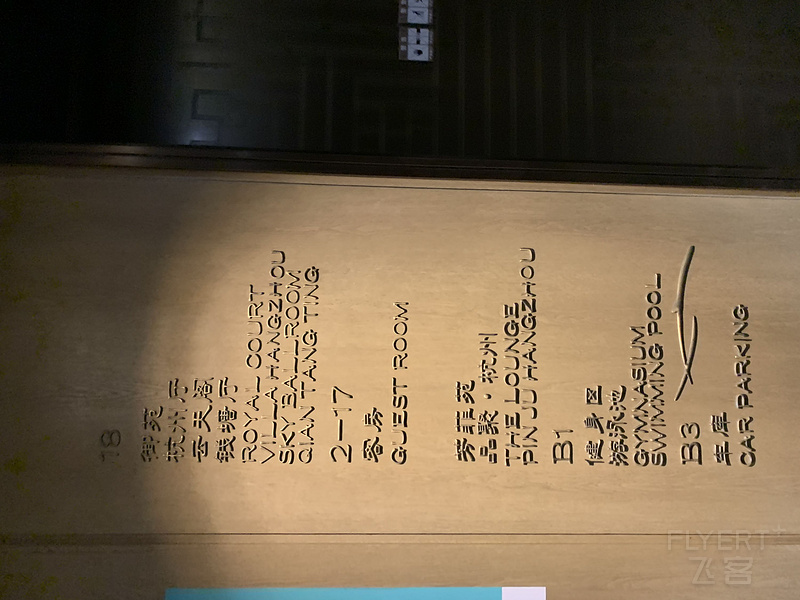 18
御苑
杭州厅
天阁
钱塘厅
ROYAL COURT
VILLA HANGZHOU
SKY BALLROOM
QIAN TANG TING
2—17
客房
GUEST ROOM
芬菲苑
品聚·杭州
THE LOUNGE
PIN JU HANGZHOU
B1
健身区
游泳池
GYMNASIUM
SWIMMING POOL
B3
车库
CAR PARKING
FLYERT
飞客